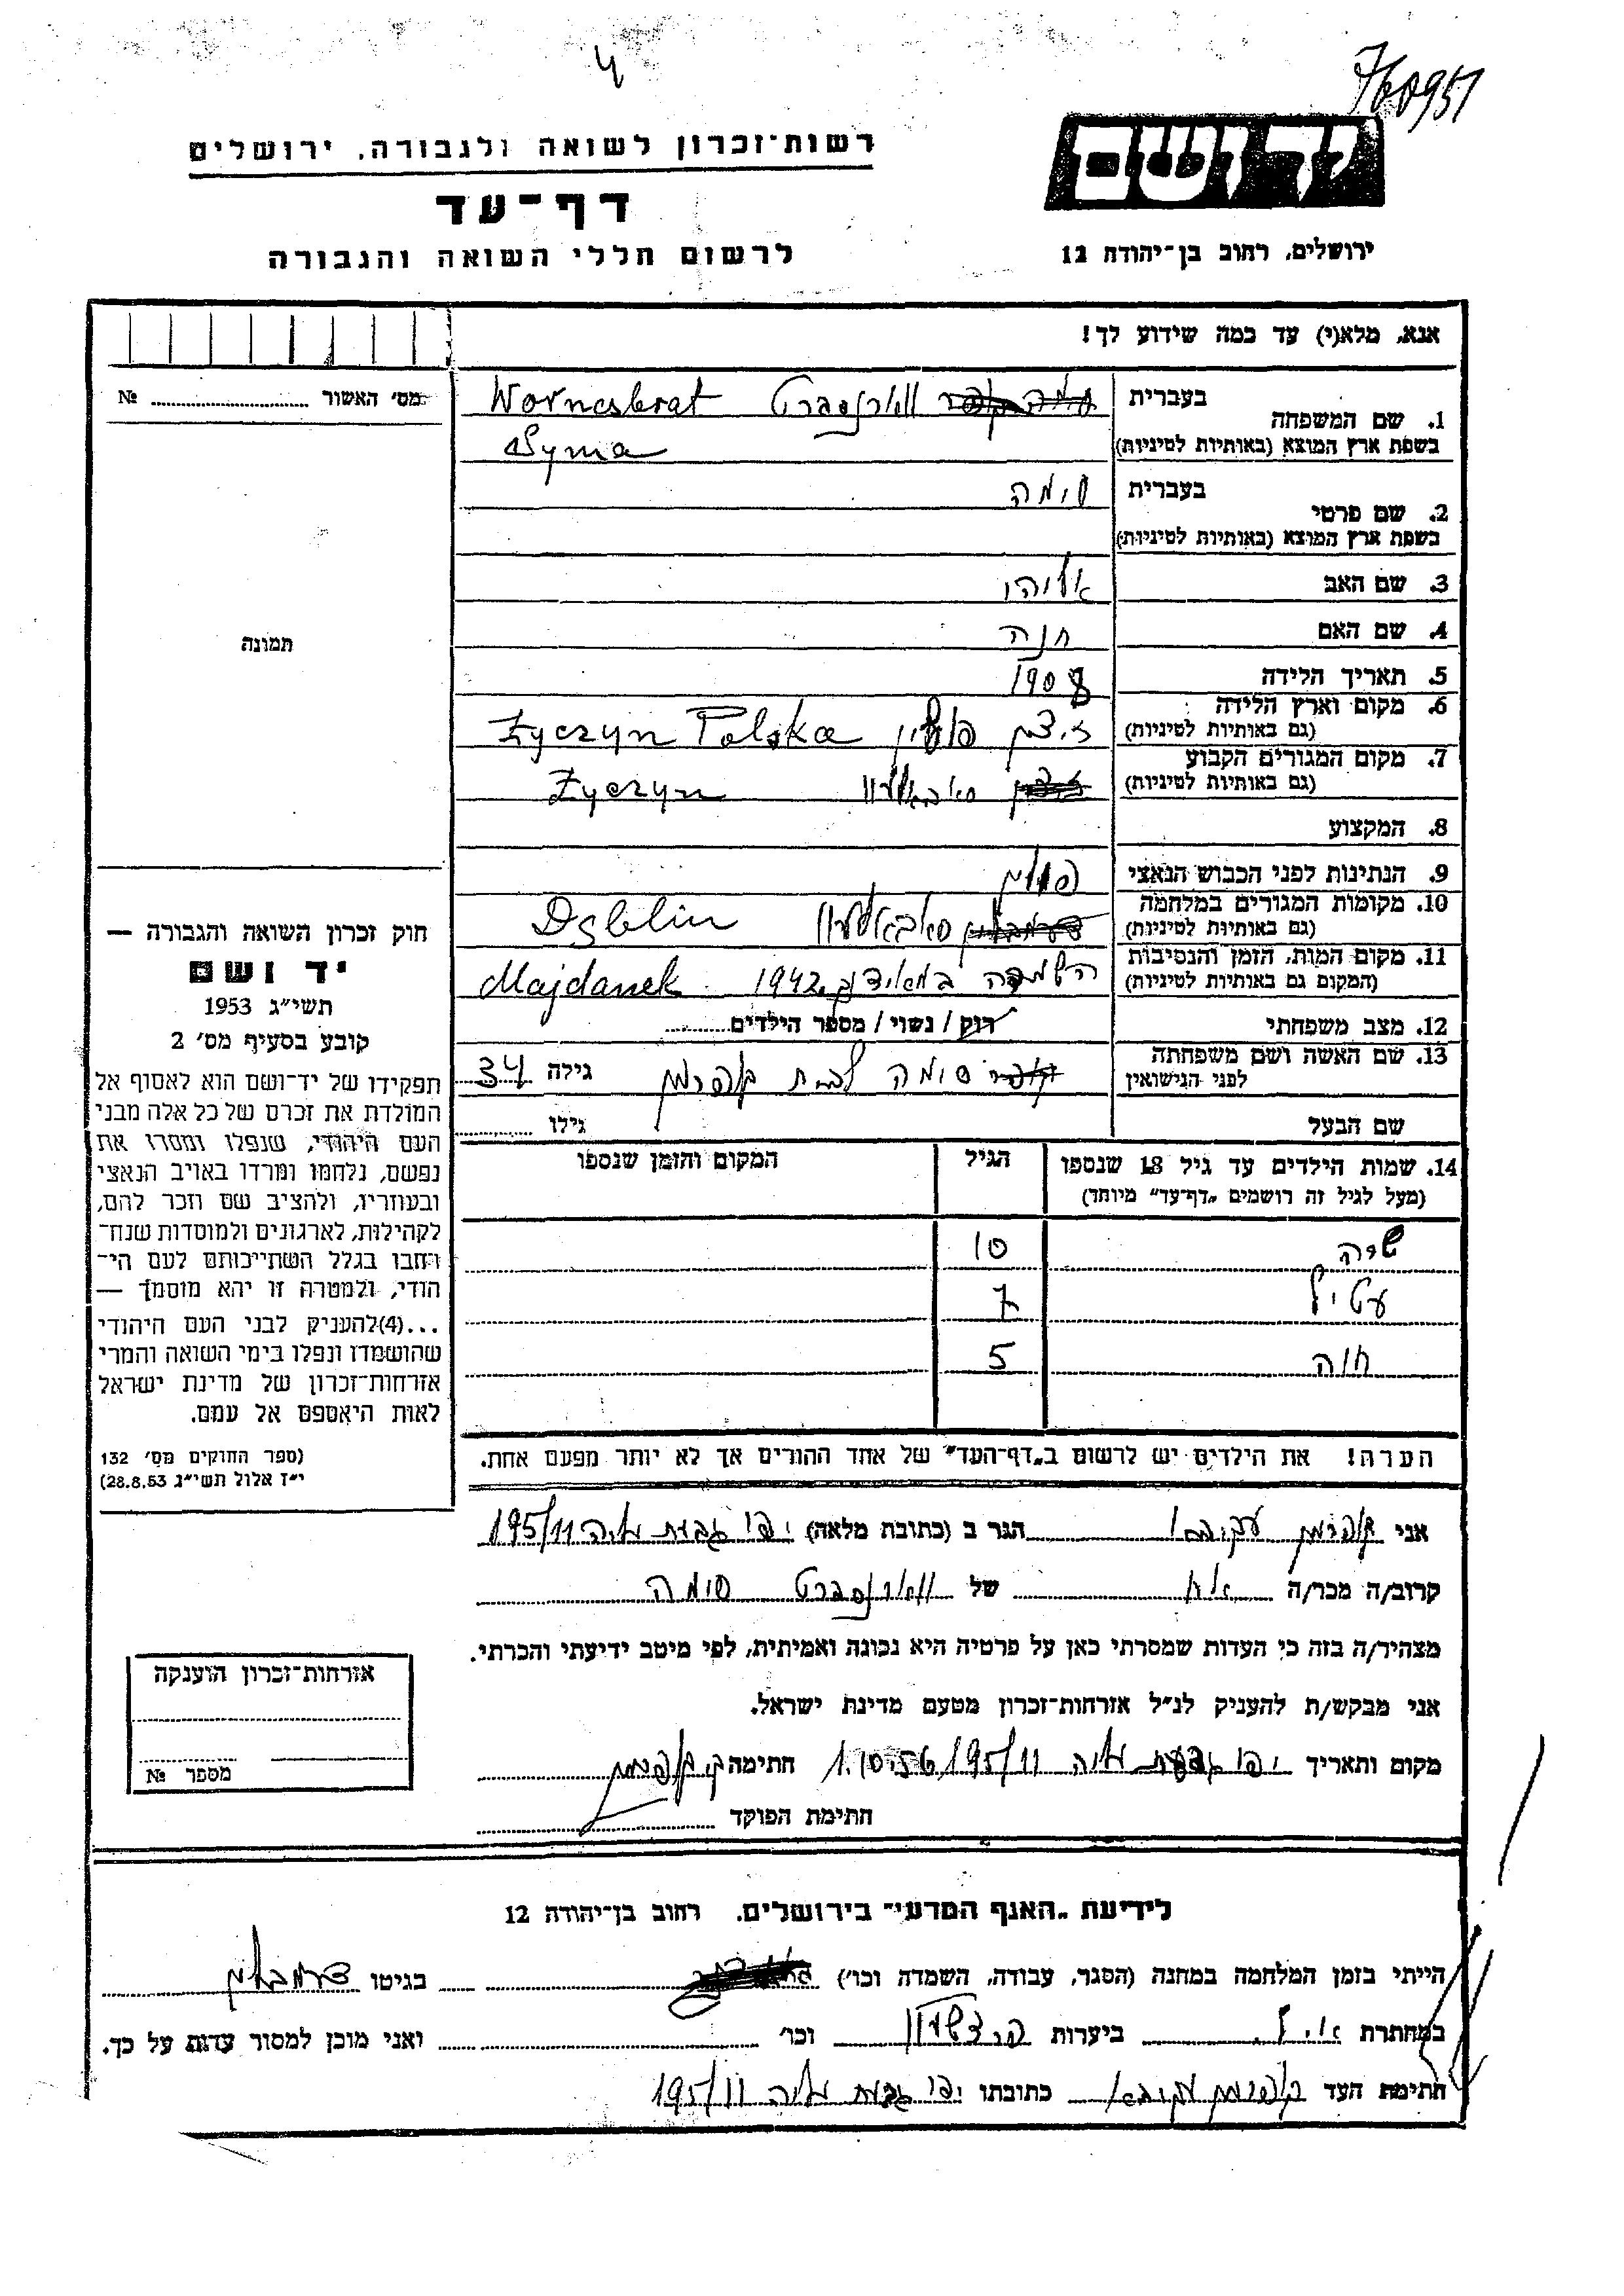 4
760951
יד ושם
רשות־זכרון לשואה ולגבורה, ירושלים
דף־עד
לרשום חללי השואה והגבורה
ירושלים, רחוב בן־יהודה 12
אנא, מלא(י) עד כמה שידוע לך!
מס׳ האשור № 
1. שם המשפחה בעברית ווארנסברט Wornesbrat
בשפת ארץ המוצא (באותיות לטיניות) Syma
2. שם פרטי בעברית סימה
בשפת ארץ המוצא (באותיות לטיניות)
3. שם האב אליהו
4. שם האם חנה
5. תאריך הלידה 1908
6. מקום וארץ הלידה זיצין פולין Życzyn Polska
(גם באותיות לטיניות)
7. מקום המגורים הקבוע Życzyn
(גם באותיות לטיניות)
8. המקצוע
9. הנתינות לפני הכבוש הנאצי פולין
10. מקומות המגורים במלחמה Dęblin
(גם באותיות לטיניות)
11. מקום המות, הזמן והנסיבות השמדה במאידנק 1942 Majdanek
(המקום גם באותיות לטיניות)
12. מצב משפחתי רוק / נשוי / מספר הילדים
13. שם האשה ושם משפחתה סימה לבית גילה 34
לפני הנישואין
שם הבעל גילו
תמונה
חוק זכרון השואה והגבורה —
יד ושם
תשי״ג 1953
קובע בסעיף מס׳ 2
תפקידו של יד־ושם הוא לאסוף אל
המולדת את זכרם של כל אלה מבני
העם היהודי, שנפלו ומסרו את
נפשם, נלחמו ומרדו באויב הנאצי
ובעוזריו, ולהציב שם וזכר להם,
לקהילות, לארגונים ולמוסדות שנח־
רחבו בגלל השתייכותם לעם הי־
הודי, ולמטרה זו יהא מוסמך —
...(4)להעניק לבני העם היהודי
שהושמדו ונפלו בימי השואה והמרי
אזרחות־זכרון של מדינת ישראל
לאות היאספם אל עמם.
(ספר החוקים מס׳ 132
י״ז אלול תשי״ג 28.8.53)
14. שמות הילדים עד גיל 18 שנספו הגיל המקום והזמן שנספו
(מעל לגיל זה רושמים „דף־עד״ מיוחד)
שרה 10
7
חוה 5
הערה! את הילדים יש לרשום ב„דף־העד״ של אחד ההורים אך לא יותר מפעם אחת.
אני הגר ב (כתובת מלאה) יפו גבעת עליה 195/11
קרוב/ה מכר/ה אח של ווארנסברט סימה
מצהיר/ה בזה כי העדות שמסרתי כאן על פרטיה היא נכונה ואמיתית, לפי מיטב ידיעתי והכרתי.
אני מבקש/ת להעניק לנ״ל אזרחות־זכרון מטעם מדינת ישראל.
מקום ותאריך יפו גבעת עליה 195/11 1.10.56 חתימה
חתימת הפוקד
אזרחות־זכרון הוענקה
מספר №
לידיעת „האגף המדעי״ בירושלים, רחוב בן־יהודה 12
הייתי בזמן המלחמה במחנה (הסגר, עבודה, השמדה וכו׳) בגיטו
במחתרת ביערות וכו׳ ואני מוכן למסור עדות על כך.
חתימת העד כתובתו יפו גבעת עליה 195/11